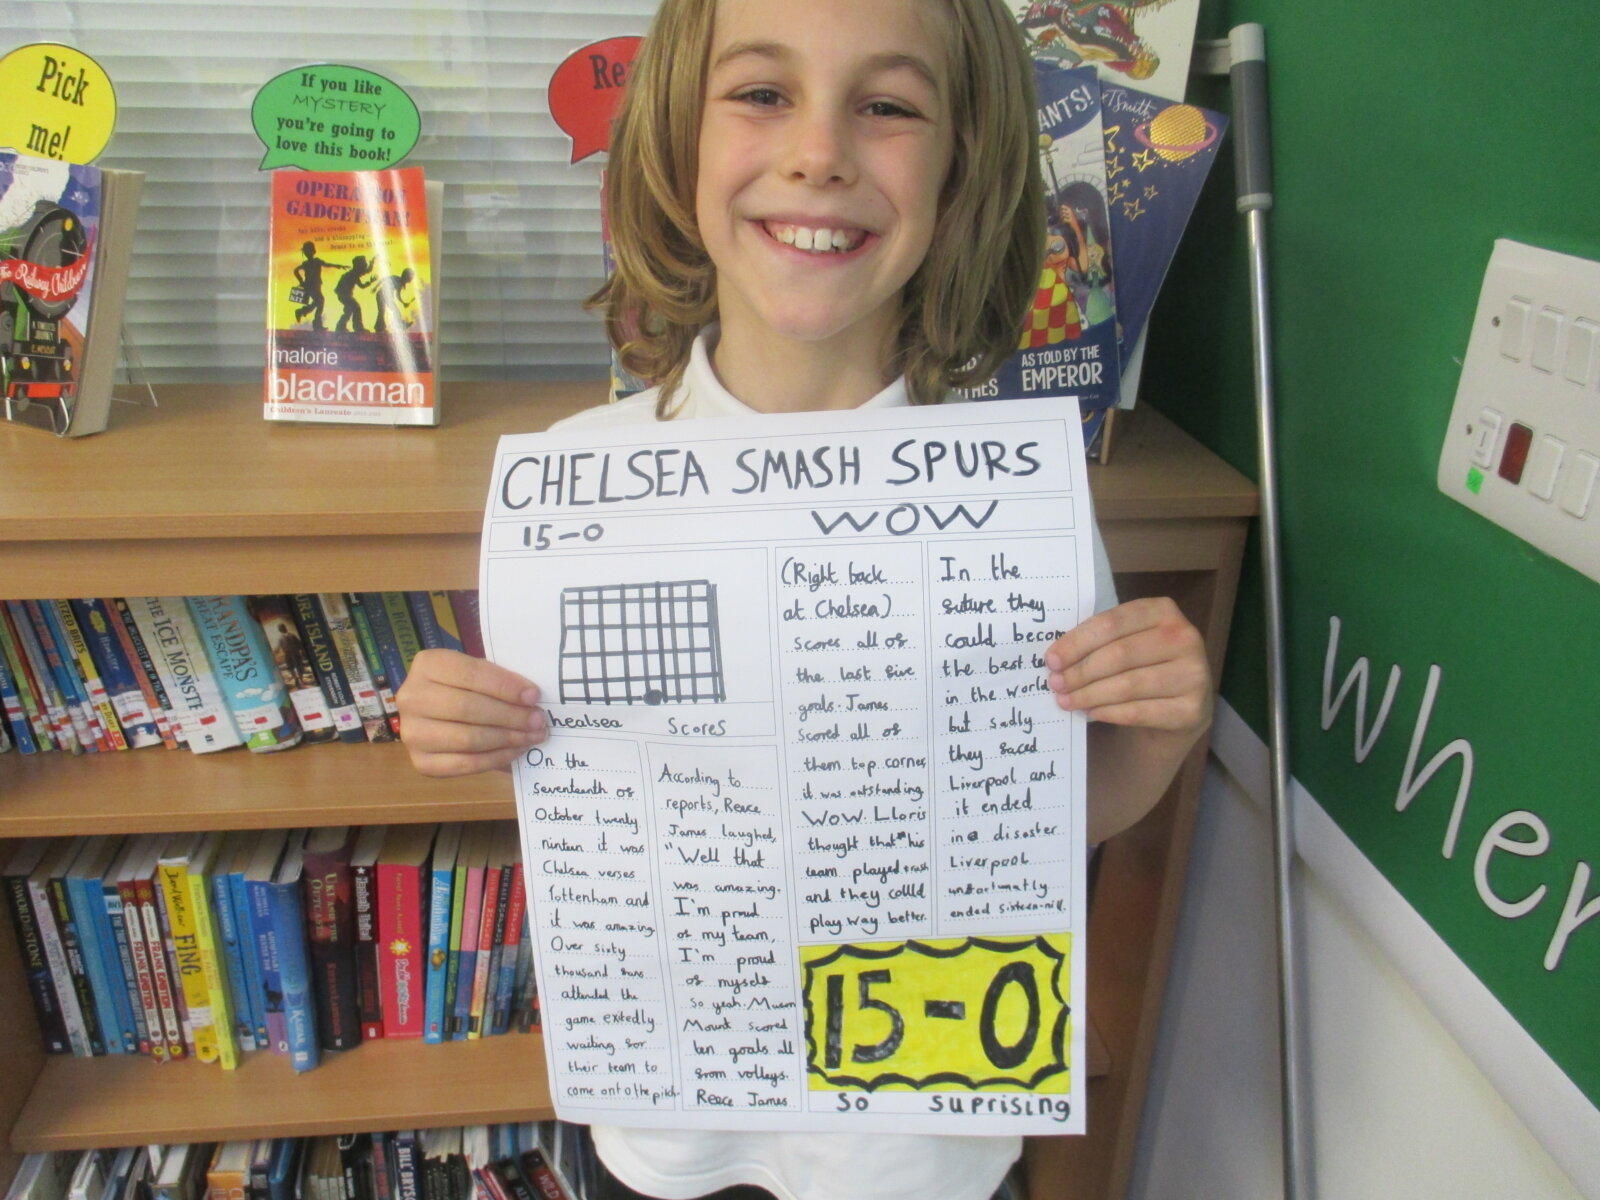 Pick
me!
If you like
MYSTERY
you're going to
love this book!
Re
The Railway Children
OPERATION
GADGETMAN!
malorie
blackman
Children's Laureate
ANTS!
AS TOLD BY THE
EMPEROR
T Smith
CHELSEA SMASH SPURS
15-0 WOW
Chealsea Scores
On the
seventeenth of
October twenty
ninteen it was
Chelsea verses
Tottenham and
it was amazing.
Over sixty
thousand fans
attended the
game exitedly
waiting for
their team to
come onto the pitch.
According to
reports, Reece
James laughed,
"Well that
was amazing.
I'm proud
of my team,
I'm proud
of myself
so yeah. Mason
Mount scored
ten goals all
from volleys.
Reece James
(Right back
at Chelsea)
scores all of
the last five
goals. James
scored all of
them top corner
it was outstanding
WOW. Lloris
thought that his
team played trash
and they could
play way better.
In the
future they
could becom
the best te
in the world
but sadly
they faced
Liverpool and
it ended
in a disaster
Liverpool
unfortunatly
ended sixteen-nill.
15-0
So suprising
when
THE ICE MONSTER
GRANDPA'S
GREAT ESCAPE
FING